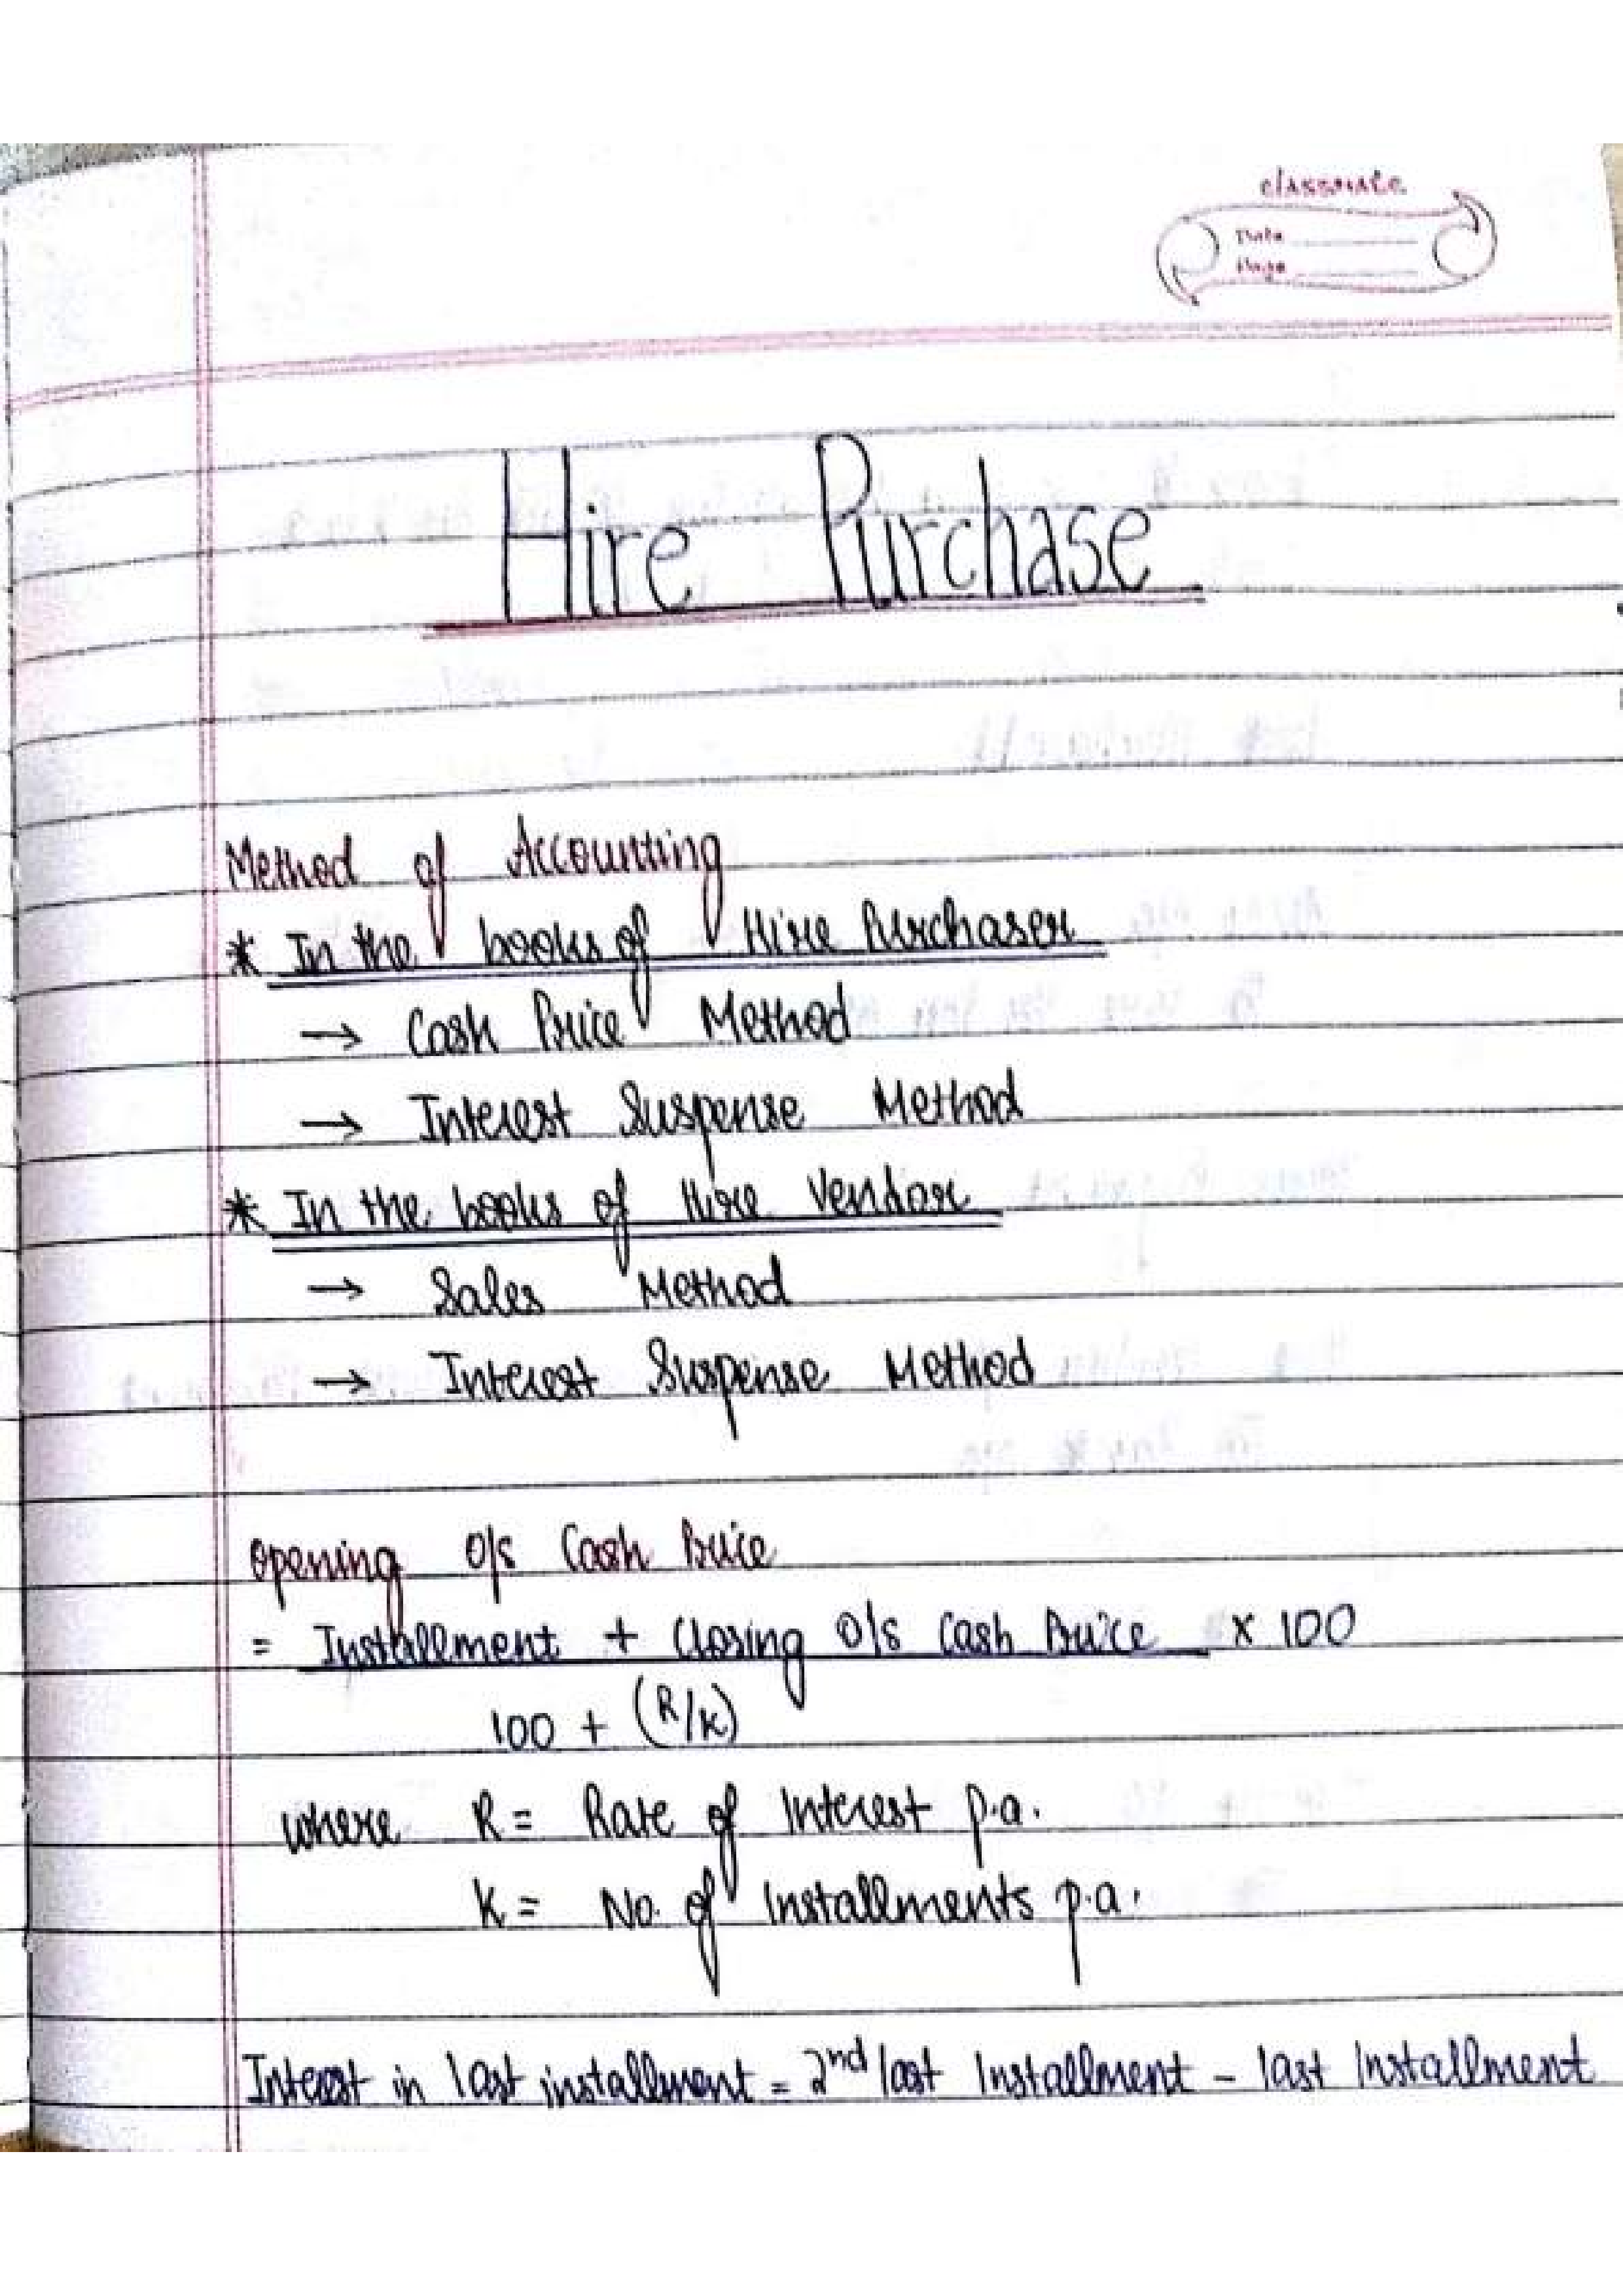 classmate
Date
Page
Hire Purchase
Method of Accounting
* In the books of Hire Purchaser
→ Cash Price Method
→ Interest Suspense Method
* In the books of Hire Vendor
→ Sales Method
→ Interest Suspense Method
Opening O/s Cash Price
= Installment + Closing O/s Cash Price × 100
100 + (R/K)
where R = Rate of Interest p.a.
K = No. of Installments p.a.
Interest in last installment = 2nd last Installment - last Installment